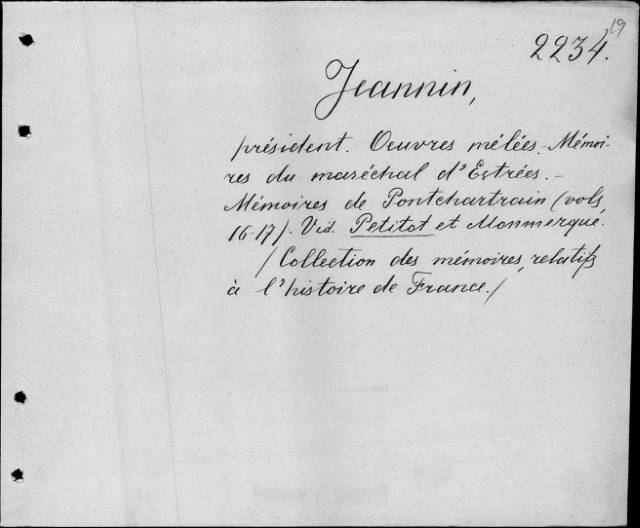 19
2234.
Jeannin,
président. Oeuvres mélées. Mémoi-
res du maréchal d'Estrées. -
Mémoires de Pontchartrain (vols
16-17). Vid. Petitot et Monmerqué.
/Collection des mémoires relatifs
à l'histoire de France./